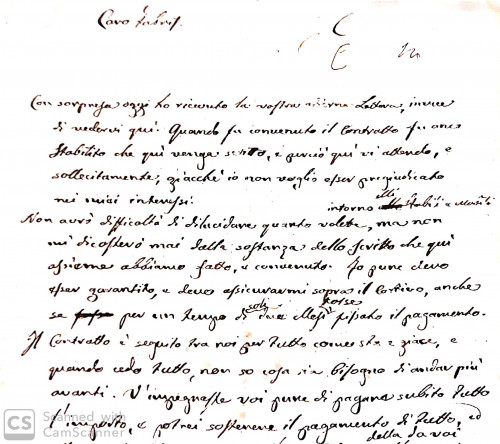 Caro Fabris.
Con sorpresa oggi ho ricevuto la vostra Lettera, invece
di vedervi quì. Quando fu convenuto il Contratto fu anco
stabilito che quì venga scritto, e perciò quì vi attendo, e
sollecitamente; giacchè io non voglio esser pregiudicato
nei miei interessi. intorno alli Stabili e
Non avrò difficoltà di dilucidare quanto volete, ma non
mi discosterò mai dalla sostanza dello scritto che quì
assieme abbiamo fatto, e convenuto. Io pure devo
esser garantito, e devo assicurarmi sopra il, anche
soli forse
se per un tempo di due Mesi fissato il pagamento.
Il Contratto è seguito tra noi per tutto come sta e giace, e
quando cedo tutto, non so cosa sia bisogno di andar più
avanti. V'impegnaste voi pure di pagare subito tutto
l'importo, e potrei sostenere il pagamento di tutto, ed
della da voi
CS Scanned with
CamScanner